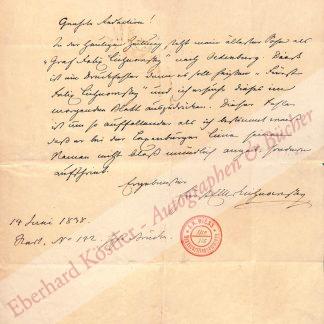 Geehrte Redaction!
In der heutigen Zeitung, steht mein ältester Sohn als
"Graf Felix Lichnowsky" nach Oedenburg. Dieß
ist ein Druckfehler denn es soll heißen "Fürst
Felix Lichnowsky" und ich ersuche dieß im
morgenden Blatt auszudrücken. Dieser Fehler
ist um so auffallender als ich bestimmt weiß
daß er bei der Linie seinen
Namen nicht bloß mündlich angab sondern
aufschrieb.
Ergebenster
Lichnowsky
14 Juni 1838.
Stadt, No
Eberhard Köstler - Autographen & Bücher